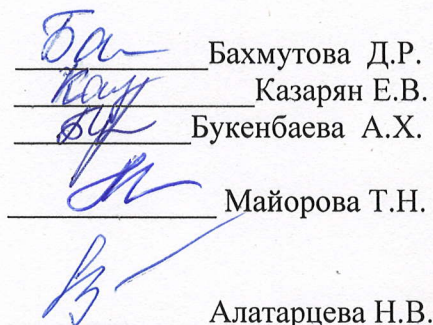 Бахмутова Д.Р.
Казарян Е.В.
Букенбаева А.Х.
Майорова Т.Н.
Алатарцева Н.В.